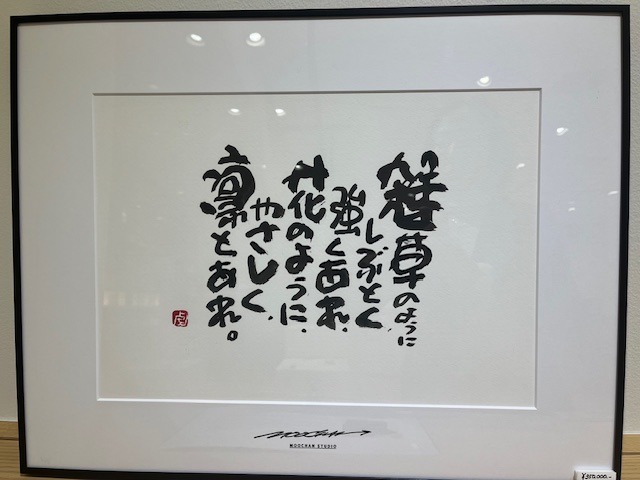 雑草のように
しぶとく
強くあれ、
花のように、
やさしく、
凛とあれ。
MOOCHAM STUDIO
¥350,000.-